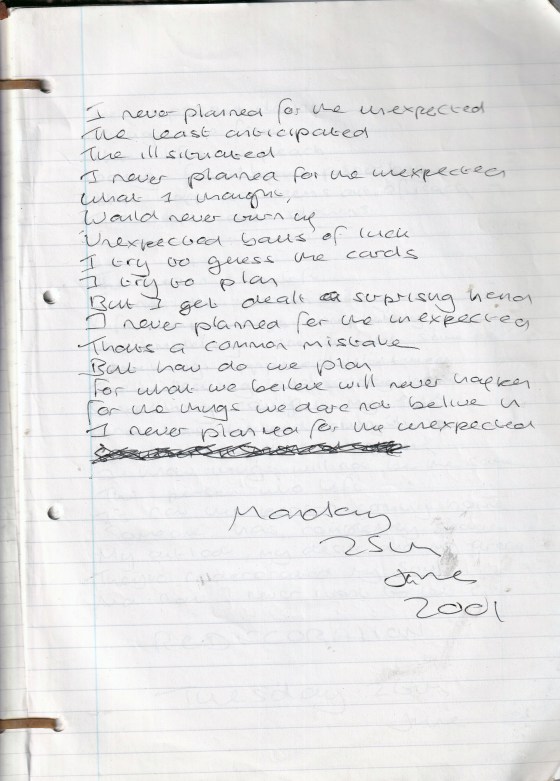 I never planned for the unexpected
The least anticipated
The ill situated
I never planned for the unexpected
What I thought,
Would never turn up
Unexpected balls of luck
I try to guess the cards
I try to plan
But I get dealt a surprising hand
I never planned for the unexpected
Thats a common mistake
But how do we plan
For what we believe will never happen
For the things we dare not belive in
I never planned for the unexpected
Monday
25th
June
2001